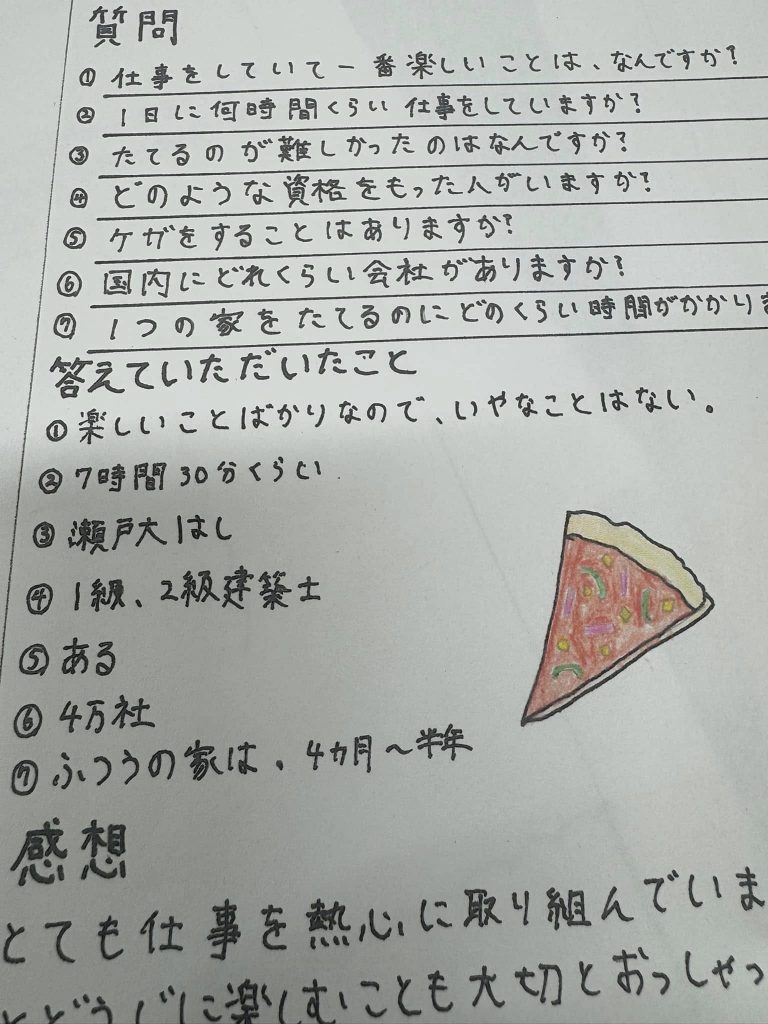 質問
① 仕事をしていて一番楽しいことは、なんですか?
② 1日に何時間くらい仕事をしていますか?
③ たてるのが難しかったのはなんですか?
④ どのような資格をもった人がいますか?
⑤ ケガをすることはありますか?
⑥ 国内にどれくらい会社がありますか?
⑦ 1つの家をたてるのにどのくらい時間がかかりま
答えていただいたこと
① 楽しいことばかりなので、いやなことはない。
② 7時間30分くらい
③ 瀬戸大はし
④ 1級、2級建築士
⑤ ある
⑥ 4万社
⑦ ふつうの家は、4カ月〜半年
感想
とても仕事を熱心に取り組んでいま
とどうじに楽しむことも大切とおっしゃっ